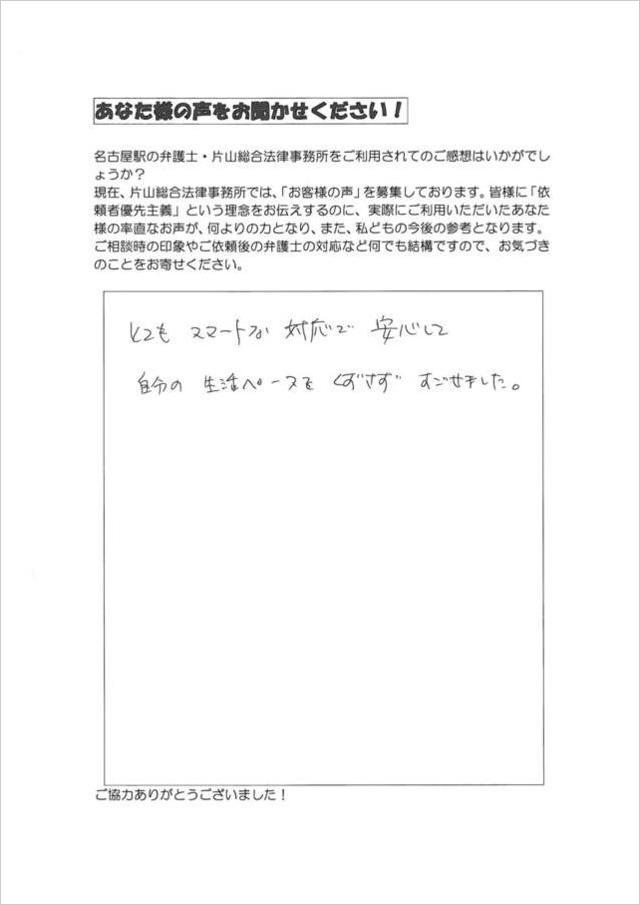 あなた様の声をお聞かせください！
名古屋駅の弁護士・片山総合法律事務所をご利用されてのご感想はいかがでし
ょうか？
現在、片山総合法律事務所では、「お客様の声」を募集しております。皆様に「依
頼者優先主義」という理念をお伝えするのに、実際にご利用いただいたあなた
様の率直なお声が、何よりの力となり、また、私どもの今後の参考となります。
ご相談時の印象やご依頼後の弁護士の対応など何でも結構ですので、お気づき
のことをお寄せください。
とても スマートな 対応で 安心して
自分の 生活ペースを くずさず すごせました。
ご協力ありがとうございました！